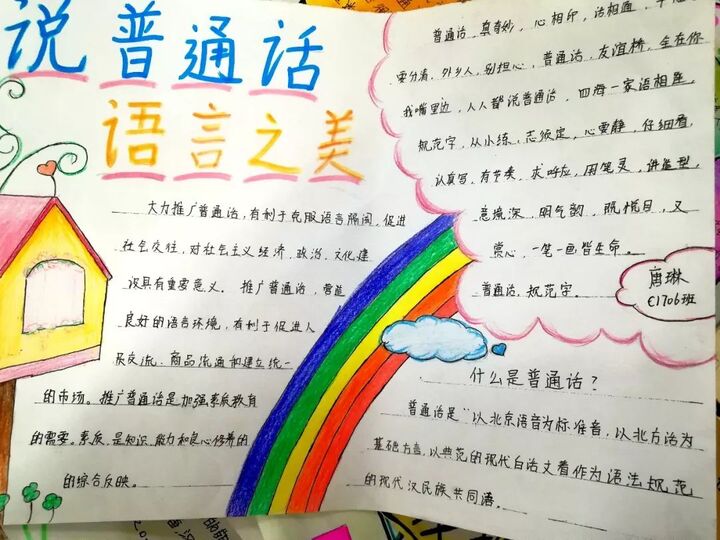 说普通话
语言之美
普通话，真奇妙，心相印，话相通，
要分清，外乡人，别担心，普通话，友谊桥，生在你
我嘴里边，人人都说普通话，四海一家语相连，
规范字，从小练，志须定，心要静，仔细看，
认真写，有节奏，求呼应，用笔灵，讲造型，
意境深，明气韵，既悦目，又
赏心，一笔一画皆生命。
普通话，规范字。
唐琳
C1706班
大力推广普通话，有利于克服语言隔阂，促进
社会交往，对社会主义经济、政治、文化建
设具有重要意义。推广普通话，营造
良好的语言环境，有利于促进人
员交流、商品流通和建立统一
的市场。推广普通话是加强素质教育
的需要。素质，是知识、能力和良心修养的
的综合反映。
什么是普通话？
普通话是"以北京语音为标准音，以北方话为
基础方言，以典范的现代白话文着作为语法规范
的现代汉民族共同语。